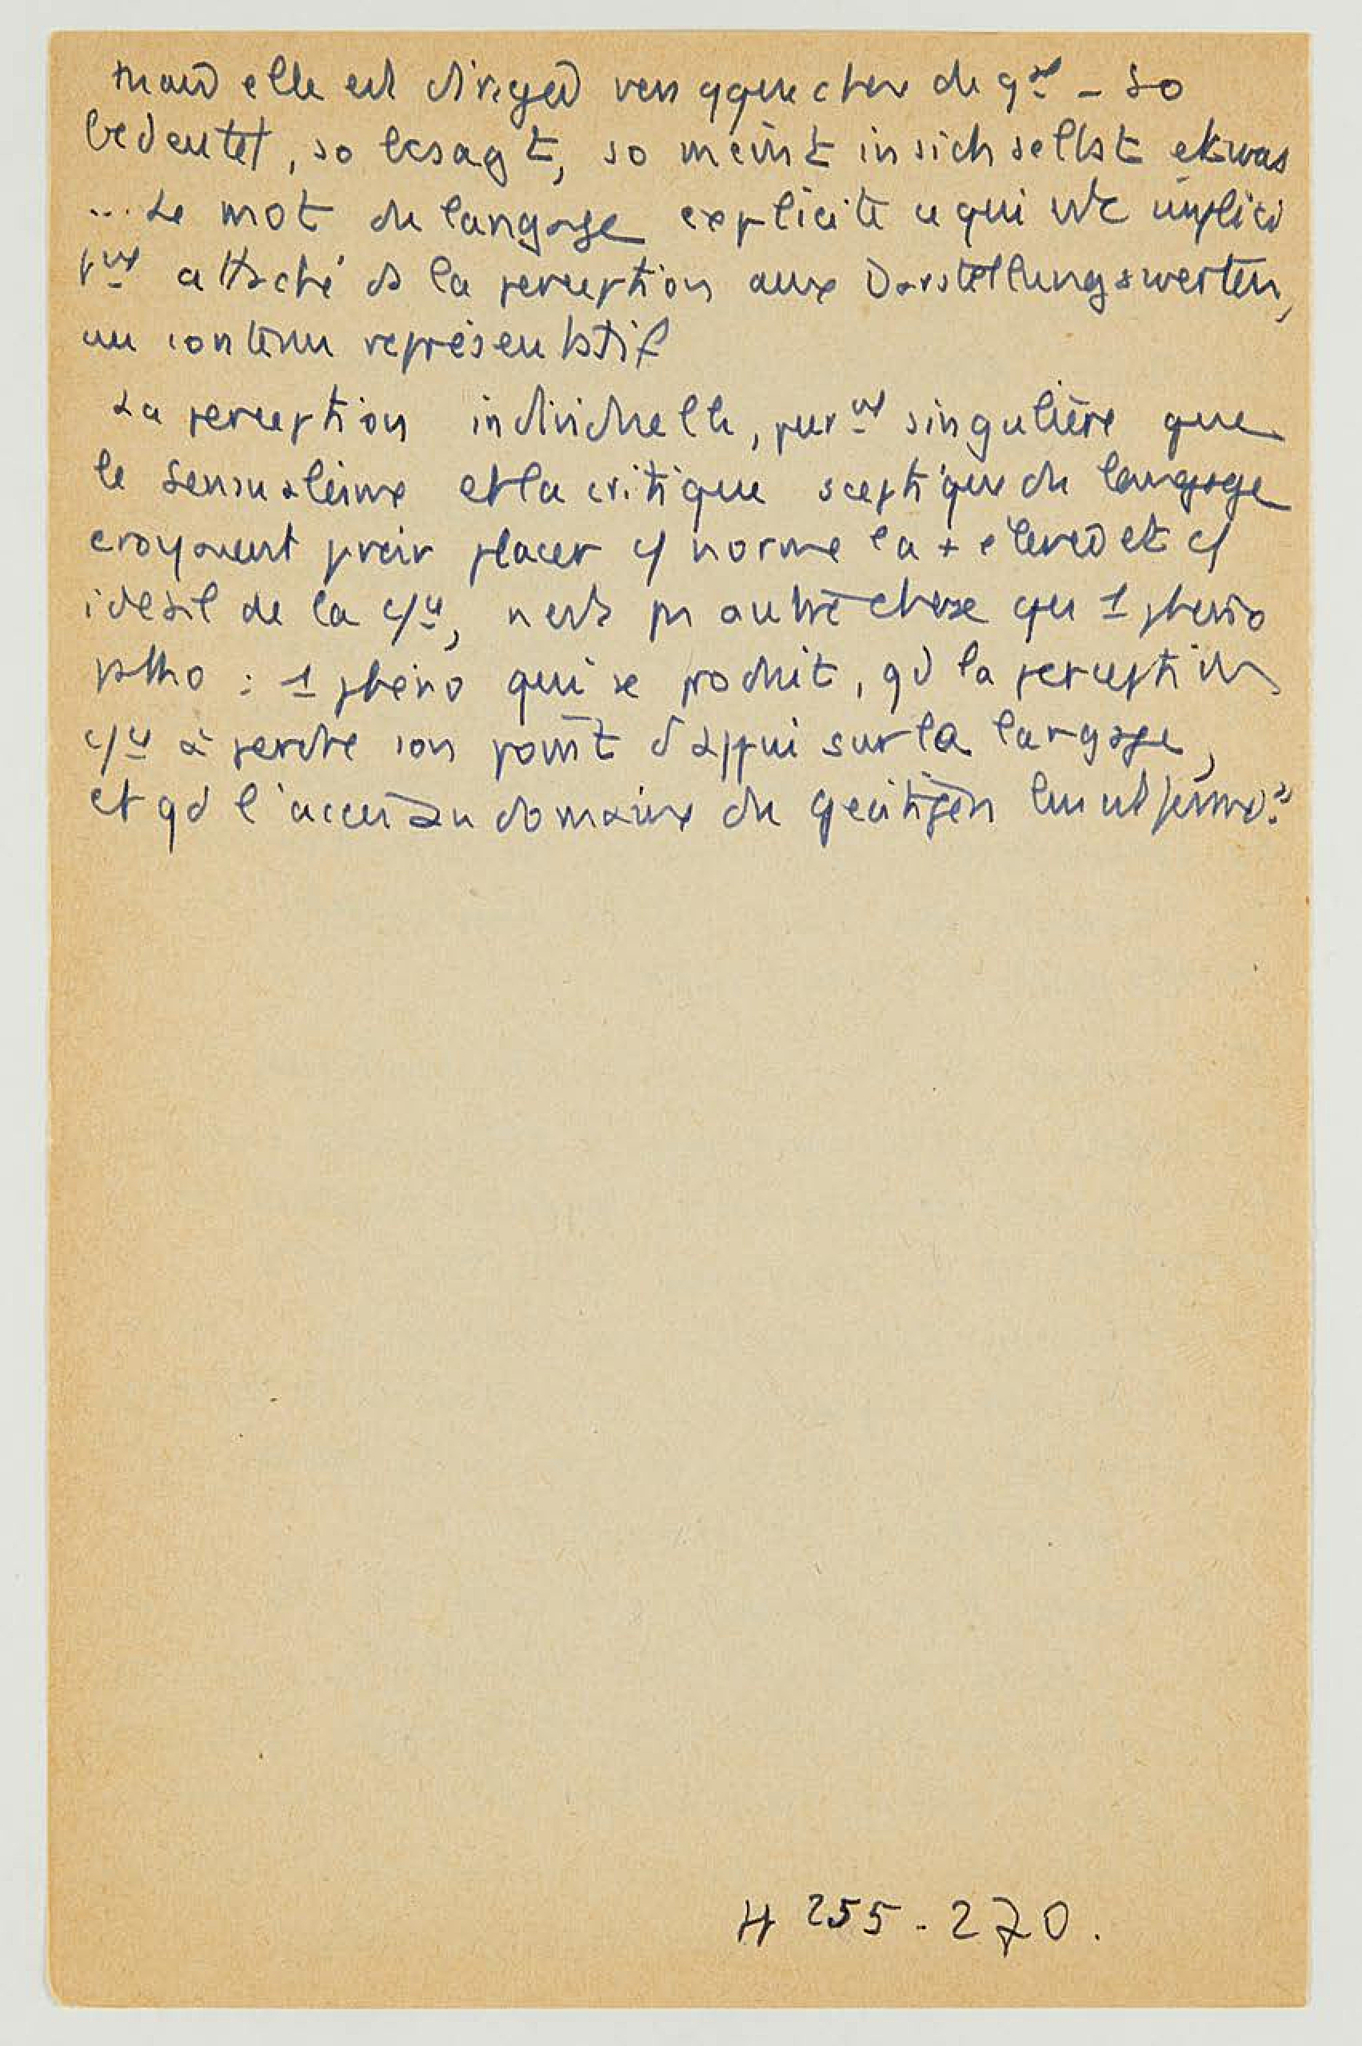 mais elle est dirigée vers qque chose de gal – so
bedeutet, so besagt, so meint in sich selbst etwas
... Le mot du langage explicite ce qui est implici
attaché ds la perception aux Darstellungswerten,
au contenu représentatif
La perception individuelle, purmt singulière que
le sensualisme et la critique sceptique du langage
croyaient placer c/ norme la + élevée et c/
idéal de la c/, n'est pas autre chose qu 1 phéno
patho : 1 phéno qui se produit, qd la perception
à perdre son point d'appui sur la langage,
et qd l'accès au domaine du geistigen lui est fermé."
H 255 - 270.